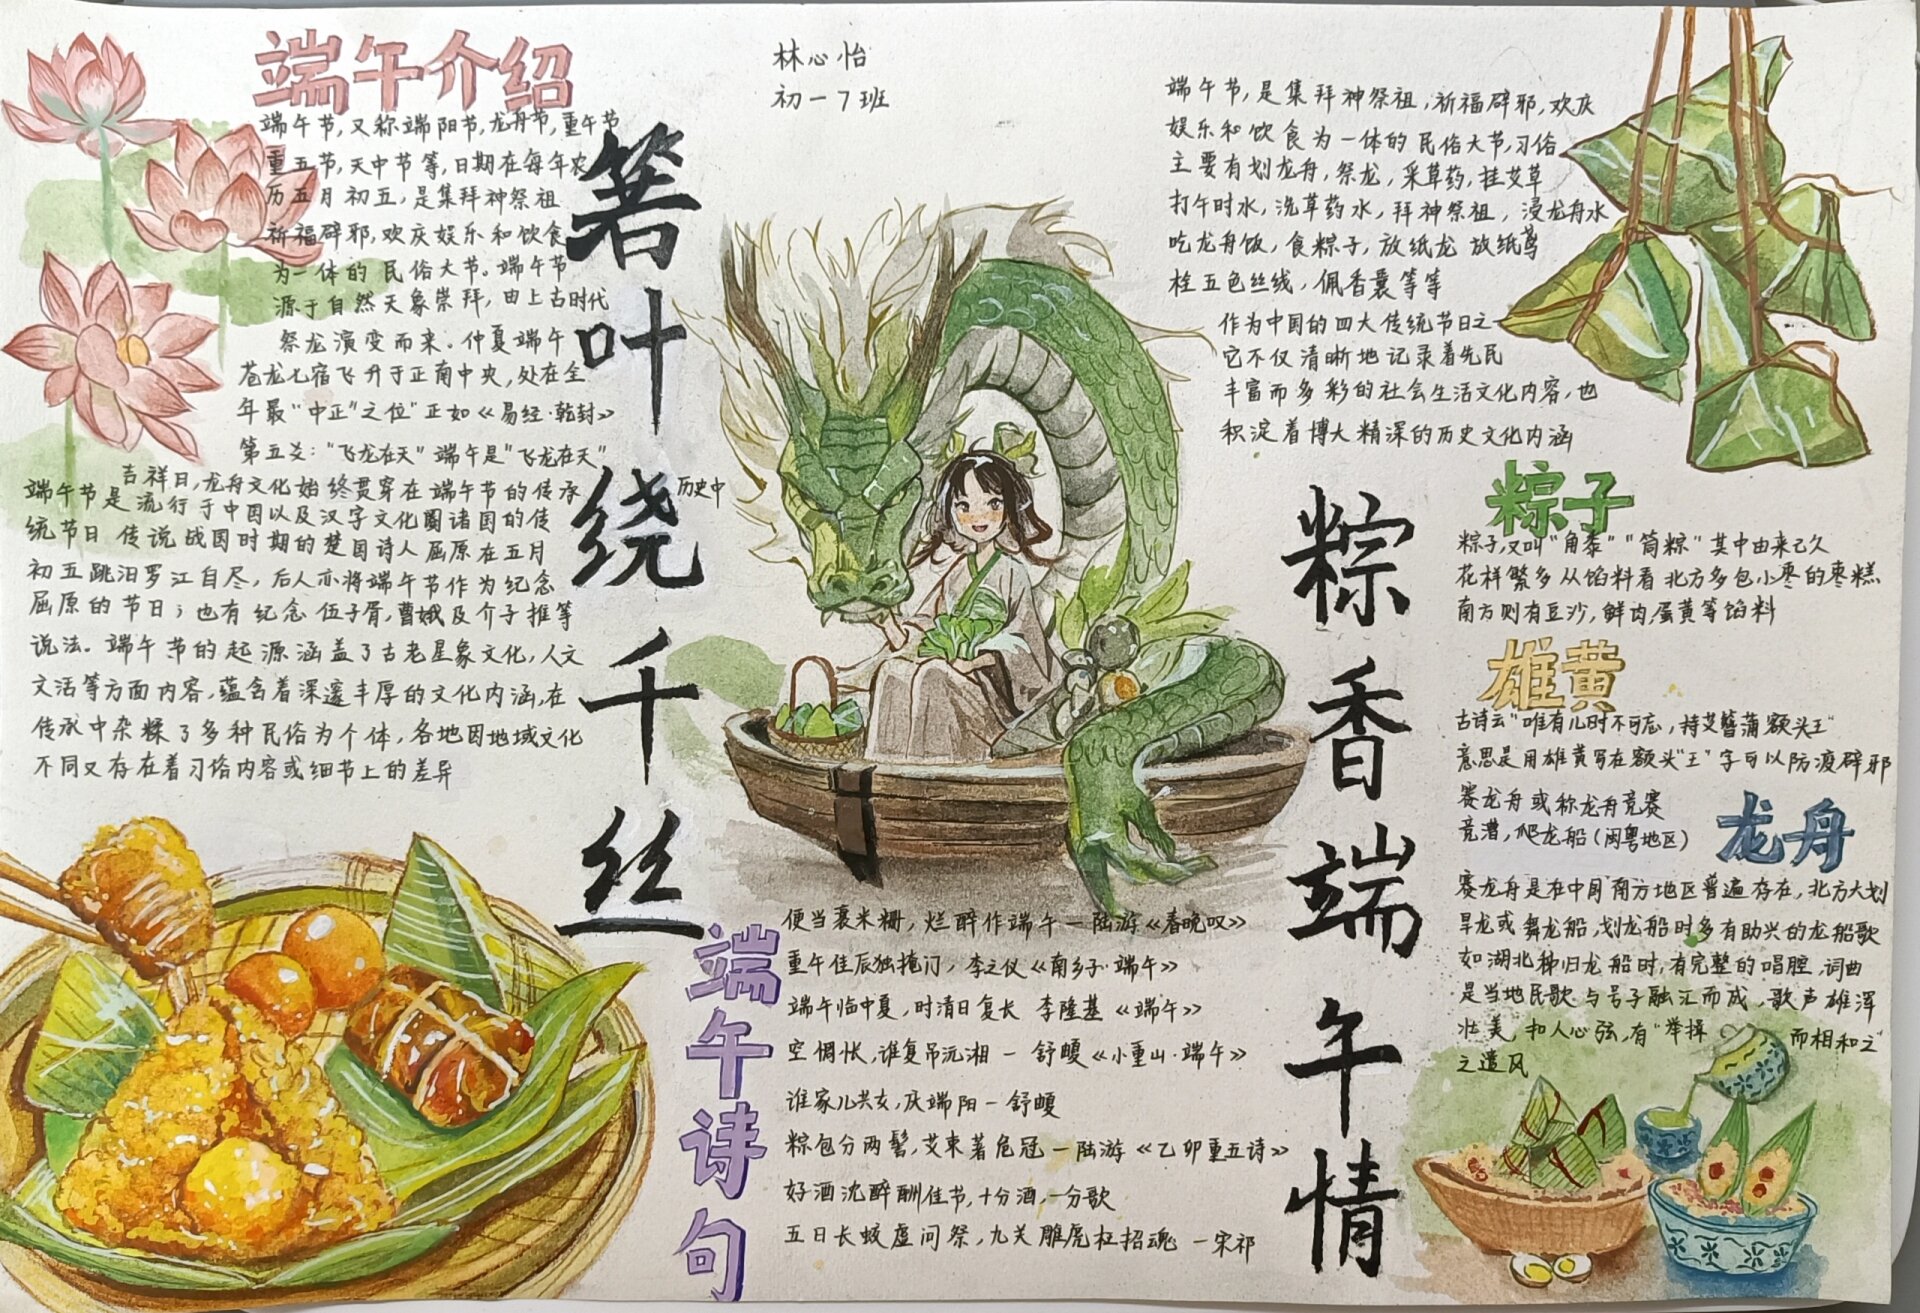 端午介绍
端午节,又称端阳节,龙舟节,重午节
重五节,天中节等,日期在每年农
历五月初五,是集拜神祭祖
祈福辟邪,欢庆娱乐和饮食
为一体的民俗大节。端午节
源于自然天象崇拜,由上古时代
祭龙演变而来。仲夏端午
苍龙七宿飞升于正南中央,处在全
年最"中正"之位"正如《易经·乾封》
第五爻:"飞龙在天"端午是"飞龙在天"
吉祥日,龙舟文化始终贯穿在端午节的传承
历史中
端午节是流行于中国以及汉字文化圈诸国的传
统节日 传说战国时期的楚国诗人屈原在五月
初五跳汨罗江自尽,后人亦将端午节作为纪念
屈原的节日;也有纪念伍子胥,曹娥及介子推等
说法。端午节的起源涵盖了古老星象文化,人文
文活等方面内容,蕴含着深邃丰厚的文化内涵,在
传承中杂糅了多种民俗为个体,各地因地域文化
不同又存在着习俗内容或细节上的差异
箬叶绕千丝
林心怡
初一7班
粽香端午情
端午诗句
便当裹米粣,烂醉作端午—陆游《春晚叹》
重午佳辰独掩门,李之仪《南乡子·端午》
端午临中夏,时清日复长 李隆基《端午》
空惆怅,谁复吊沅湘—舒頔《小重山·端午》
谁家儿共女,庆端阳—舒頔
粽包分两髻,艾束著危冠—陆游《乙卯重五诗》
好酒沈醉酬佳节,十分酒,一分歌
五日长蛟虚问祭,九关雕虎枉招魂 —宋祁
端午节,是集拜神祭祖,祈福辟邪,欢庆
娱乐和饮食为一体的民俗大节,习俗
主要有划龙舟,祭龙,采草药,挂艾草
打午时水,洗草药水,拜神祭祖,浸龙舟水
吃龙舟饭,食粽子,放纸龙 放纸鸢
栓五色丝线,佩香囊等等
作为中国的四大传统节日之一
它不仅清晰地记录着先民
丰富而多彩的社会生活文化内容,也
积淀着博大精深的历史文化内涵
粽子
粽子,又叫"角黍""筒粽"其中由来已久
花样繁多从馅料看北方多包小枣的枣糕
南方则有豆沙,鲜肉,蛋黄等馅料
雄黄
古诗云"唯有儿时不可忘,持艾簪蒲额头王"
意思是用雄黄写在额头"王"字可以防渡辟邪
龙舟
赛龙舟或称龙舟竞赛
竞漕,爬龙船(闽粤地区)
赛龙舟是在中国南方地区普遍存在,北方大划
旱龙或舞龙船,划龙船时多有助兴的龙船歌
如湖北秭归龙船时,有完整的唱腔,词曲
是当地民歌与号子融汇而成,歌声雄浑
壮美,扣人心弦,有"举揖 而相和之"
之遗风